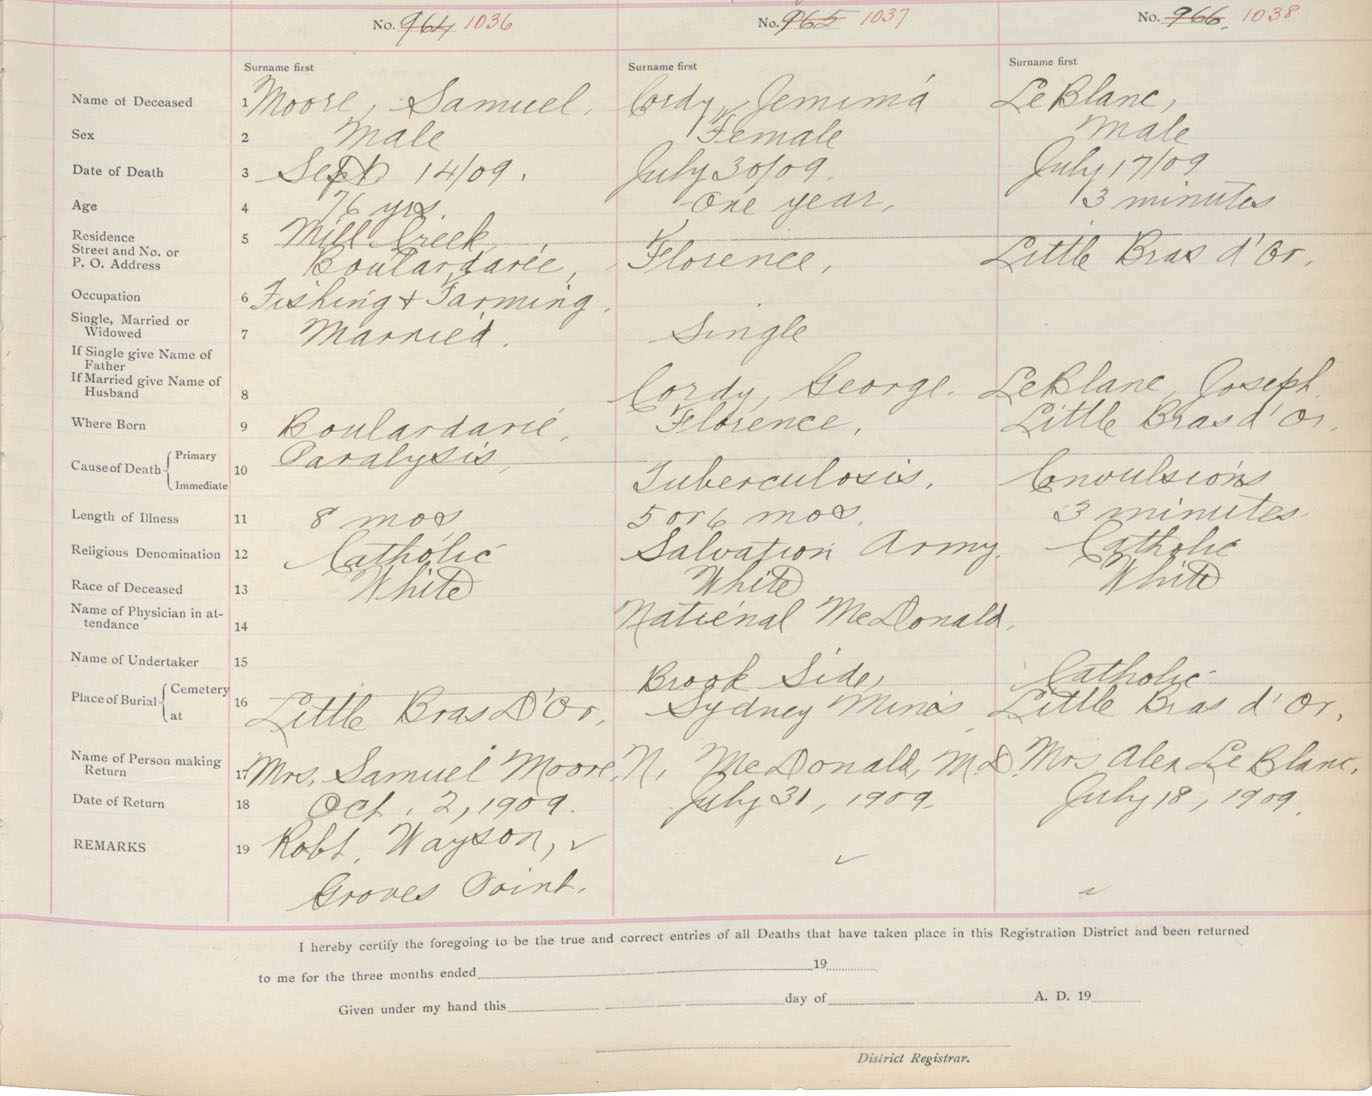 No. 964 1036 No. 965 1037 No. 966 1038
Surname first Surname first Surname first
Name of Deceased 1 Moore, Samuel. Cordy, Jemima LeBlanc,
Sex 2 Male Female Male
Date of Death 3 Sept 14/09. July 30/09. July 17/09
Age 4 76 yrs. One year, 3 minutes
Residence
Street and No. or
P. O. Address
5 Mill Creek,
Boulardarie, Florence, Little Bras d'Or,
Occupation 6 Fishing & Farming.
Single, Married or
Widowed
7 Married. Single
If Single give Name of
Father
If Married give Name of
Husband
8 Cordy, George. LeBlanc, Joseph.
Where Born 9 Boulardarie, Florence, Little Bras d'Or,
Cause of Death Primary
Immediate
10 Paralysis,
Tuberculosis. Convulsions
Length of Illness 11 8 mos 5 or 6 mos. 3 minutes.
Religious Denomination 12 Catholic Salvation Army. Catholic
Race of Deceased 13 White White White
Name of Physician in at-
tendance
14 National McDonald.
Name of Undertaker 15
Place of Burial Cemetery
at
16 Brook Side, Catholic
Little Bras D'Or, Sydney Mines Little Bras d'Or,
Name of Person making
Return
17 Mrs. Samuel Moore, N. McDonald, M.D. Mrs Alex LeBlanc,
Date of Return 18 Oct. 2, 1909. July 31, 1909. July 18, 1909.
REMARKS 19 Robt. Wayson,
Groves Point.
I hereby certify the foregoing to be the true and correct entries of all Deaths that have taken place in this Registration District and been returned
to me for the three months ended 19
Given under my hand this day of A. D. 19
District Registrar.